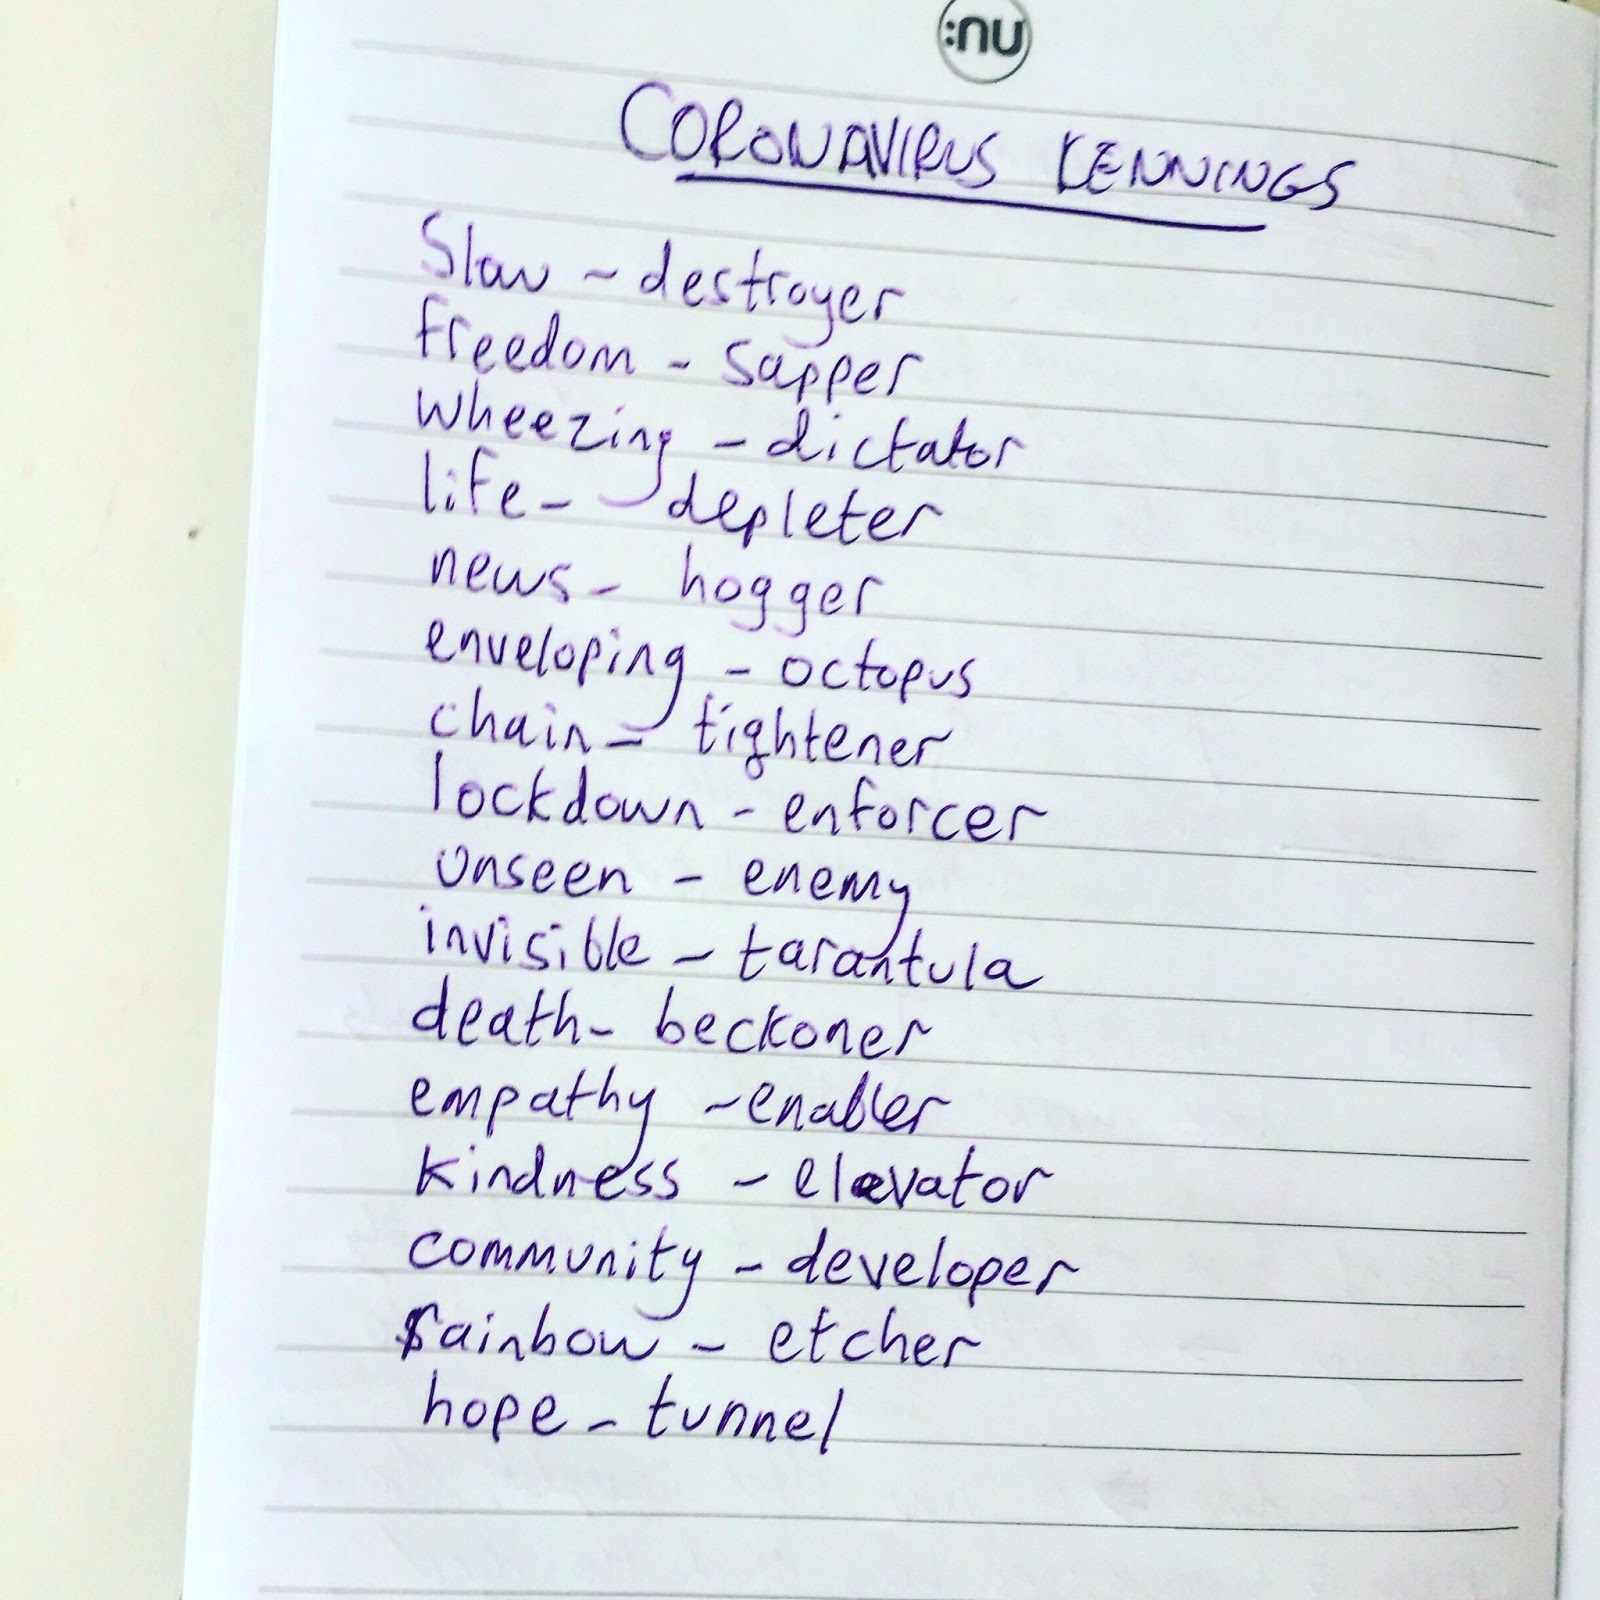 :nu
CORONAVIRUS KENNINGS
Slow - destroyer
freedom - sapper
wheezing - dictator
life - depleter
news - hogger
enveloping - octopus
chain - tightener
lockdown - enforcer
unseen - enemy
invisible - tarantula
death - beckoner
empathy - enabler
kindness - elevator
community - developer
rainbow - etcher
hope - tunnel